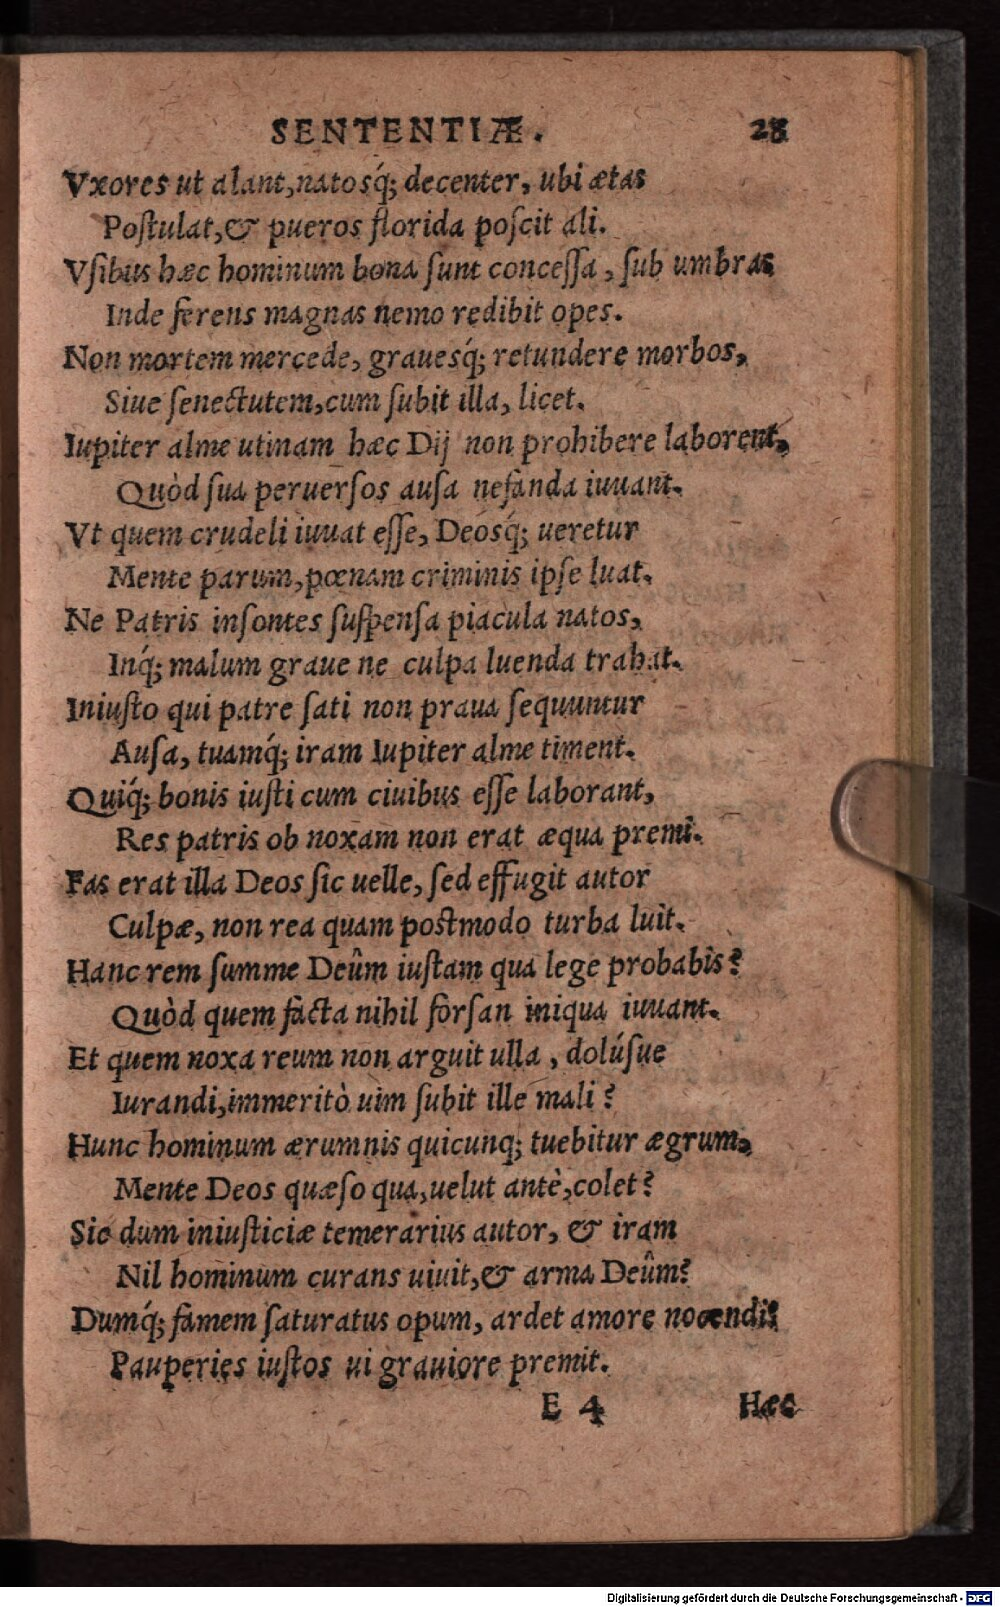 SENTENTIÆ. 28
Vxores ut alant, natosq́; decenter, ubi ætas
Poſtulat, & pueros florida poſcit ali.
Vſibus hæc hominum bona ſunt conceſſa, ſub umbras
Inde ferens magnas nemo redibit opes.
Non mortem mercede, grauesq́; retundere morbos,
Siue ſenectutem, cum ſubit illa, licet.
Iupiter alme utinam hæc Dij non prohibere laborent,
Quòd ſua peruerſos auſa nefanda iuuant.
Vt quem crudeli iuuat eſſe, Deosq́; ueretur
Mente parum, pœnam criminis ipſe luat.
Ne Patris inſontes ſuſpenſa piacula natos,
Inq́; malum graue ne culpa luenda trahat.
Iniuſto qui patre ſati non praua ſequuntur
Auſa, tuamq́; iram Iupiter alme timent.
Quiq́; bonis iuſti cum ciuibus eſſe laborant,
Res patris ob noxam non erat æqua premi.
Fas erat illa Deos ſic uelle, ſed effugit autor
Culpæ, non rea quam poſtmodo turba luit.
Hanc rem ſumme Deûm iuſtam qua lege probabis?
Quòd quem facta nihil forſan iniqua iuuant.
Et quem noxa reum non arguit ulla, dolúſue
Iurandi, immeritò uim ſubit ille mali?
Hunc hominum ærumnis quicunq; tuebitur ægrum,
Mente Deos quæſo qua, uelut antè, colet?
Sic dum iniuſticiæ temerarius autor, & iram
Nil hominum curans uiuit, & arma Deûm?
Dumq́; famem ſaturatus opum, ardet amore nocendi?
Pauperies iuſtos ui grauiore premit.
E 4 Hæc
Digitalisierung gefördert durch die Deutsche Forschungsgemeinschaft - DFG